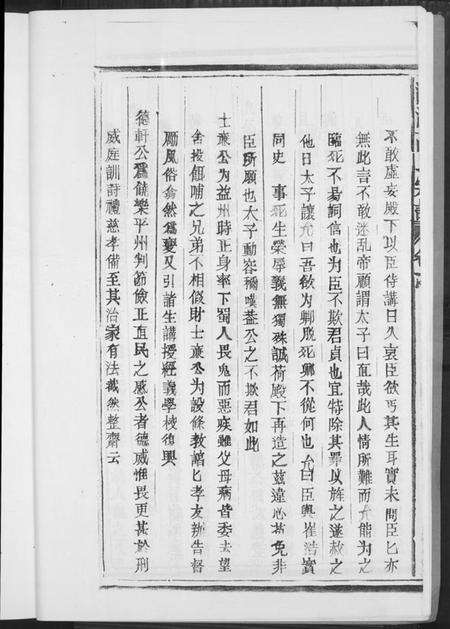 不敢虛妄殿下以臣侍講日久哀臣欲丐其生耳實未問臣臣亦
無此言不敢迷亂帝顧謂太子曰直哉此人情所難而允能為之
臨死不易詞信也为臣不欺君貞也宜特除其罪以旌之遂赦之
他日太子讓允曰吾欲为卿脱死卿不從何也允曰臣與崔浩實
同史　事死生榮辱義無獨殊誠荷殿下再造之茲違心苟免非
臣所願也太子動容稱嘆蓋公之不欺君如此
士亷公为益州時正身率下蜀人畏鬼而惡疾雖父母病皆委去望
舍投餌哺之兄弟不相假財士亷公为設條教諭匕孝友㪍告督
勵風俗翕然爲變又引諸生講授經義學校復興
德軒公爲饒樂平州判節儉正直民之感公者德威惟畏更甚於刑
威庭訓詩禮慈孝備至其治家有法截然整齋云